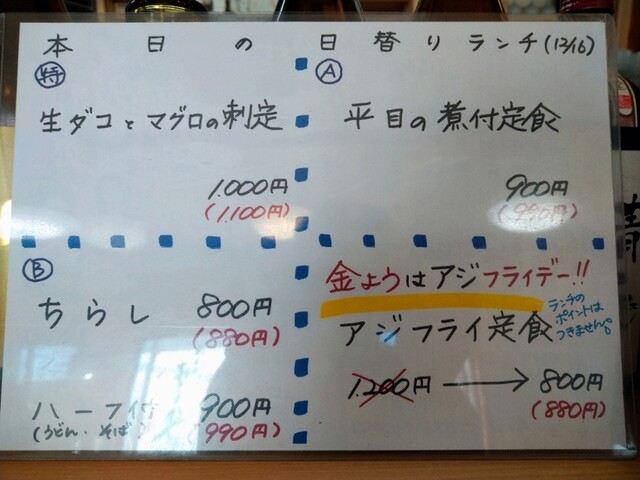 本日の日替りランチ(12/16)
特
生ダコとマグロの刺定
1.000円
(1.100円)
A
平目の煮付定食
900円
(990円)
B
ちらし 800円
(880円)
ハーフ付 900円
(うどん・そば) (990円)
金ようはアジフライデー!!
アジフライ定食
ランチの
ポイントは
つきません。
1.200円 → 800円
(880円)